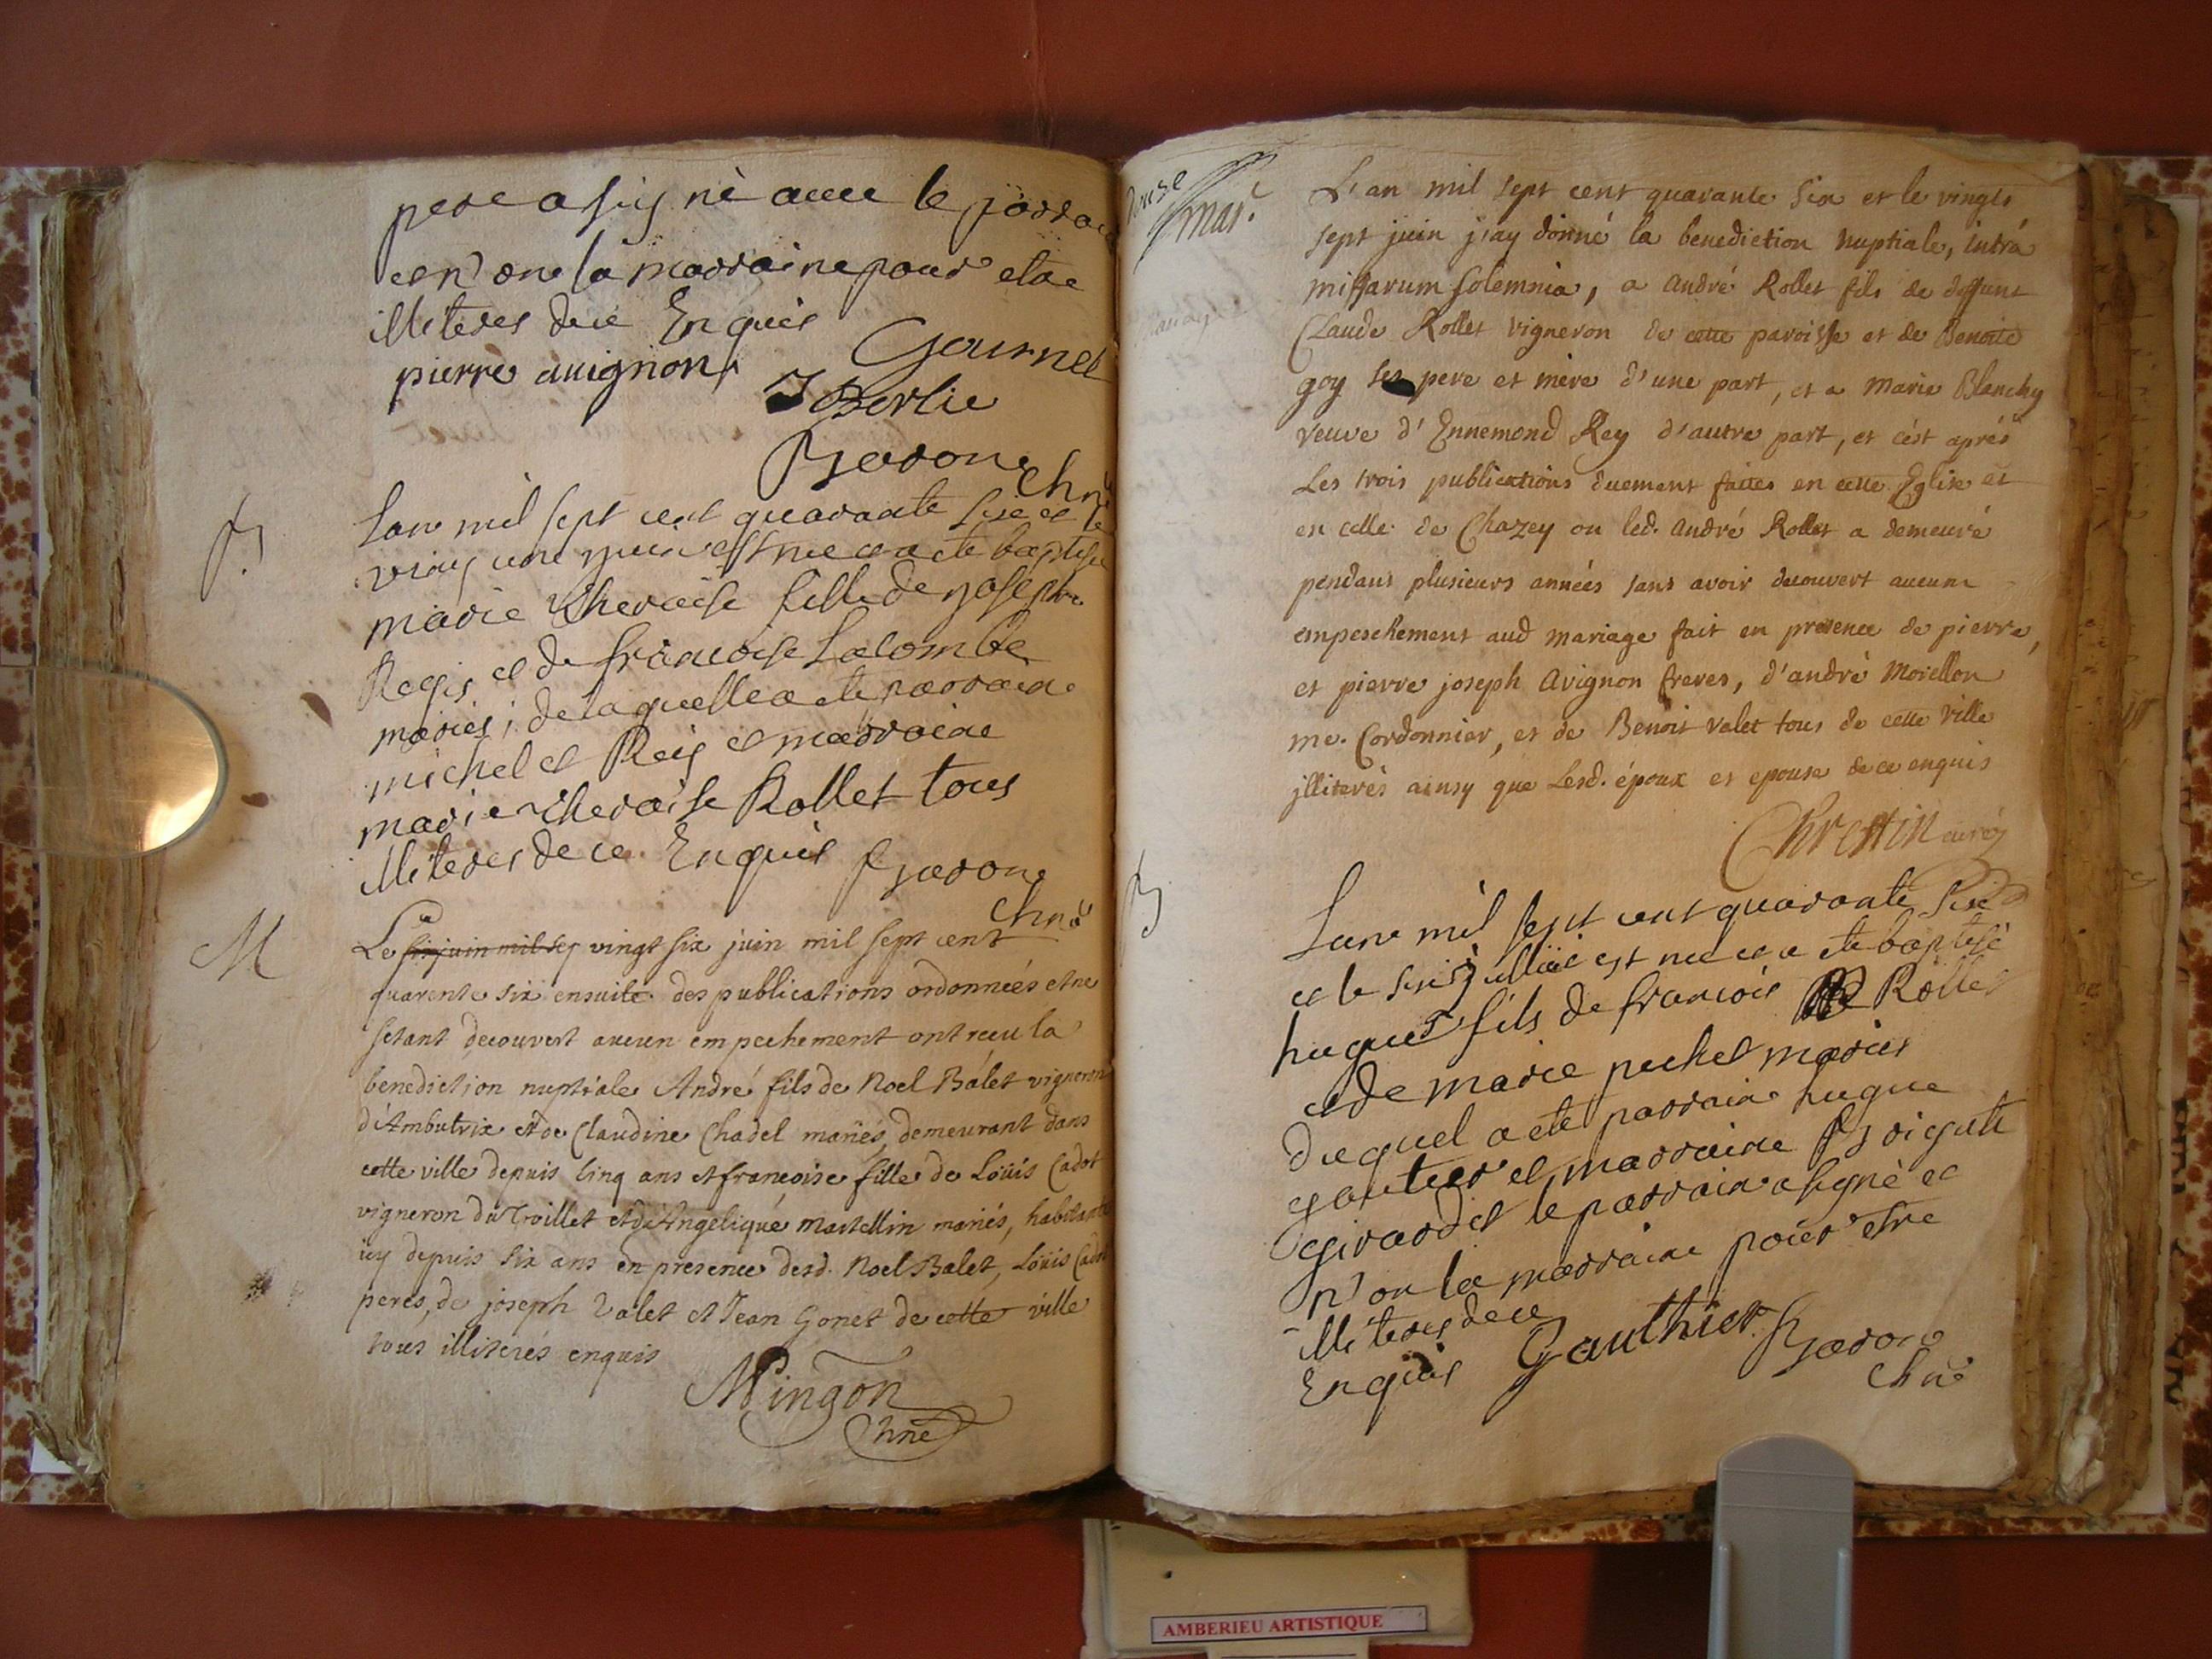 pere a signè avec le parrain
et non la marraine pour etre
illiteres de ce Enquis
pierre avignon Gournel
J Berlie
Garon
chne
B
Lan mil sept cent quarante six et le
vingt une juin est nee et a ete baptisee
marie Theraise fille de joseph
Regis et de francoise Lacombe
mariés; de laquelle a ete parrain
michel et Reis et marraine
marie Theraise Rollet tous
illiteres de ce Enquis Garon
chne
M
Le six juin mil sep vingt six juin mil sept cent
quarente six ensuite des publications ordonnées et ne
setant decouvert aucun empechement ont receu la
benediction nuptiale André fils de Noel Balet vigneron
d'Ambutrix et de Claudine Chadel mariés, demeurant dans
cette ville depuis cinq ans et francoise fille de Loüis Cadot
vigneron du Troillet et d'Angelique Martellin mariés, habitants
icy depuis six ans en presence desd. Noel Balet, Loüis Cadot
peres, de joseph Valet et Jean Gonet de cette ville
tous illiterés enquis
Mingon
chne
mar.
L'an mil sept cent quarante six et le vingts
sept juin j'ay donné la benediction nuptiale, intrà
missarum solemnia, a andré Rollet fils de deffunt
Claude Rollet vigneron de cette paroisse et de Benoite
goy ses pere et mère d'une part, et a marie Blanchy
veuve d'Ennemond Rey d'autre part, et c'est aprés
Les trois publications duement faites en cette Eglise et
en celle de Chazey ou led. andré Rollet a demeuré
pendans plusieurs années sans avoir decouvert aucune
empeschement aud mariage fait en presence de pierre,
et pierre joseph avignon freres, d'andrè Morellon
me. Cordonnier, et de Benoit valet tous de cette ville
jlliterés ainsy que Lesd. époux et epouse de ce enquis
Chrestin curé
B
Lan mil sept cent quarante six
et le six julliet est nee et a ete baptisé
hugues fils de francois Rollet
et de marie puchet mariés
duquel a ete parrain hugue
gautier et marraine Brigitte
girardet le parrain a signè et
non la marraine pour etre
illiteres de ce
Enquis Gauthier Garon
chne
AMBERIEU ARTISTIQUE